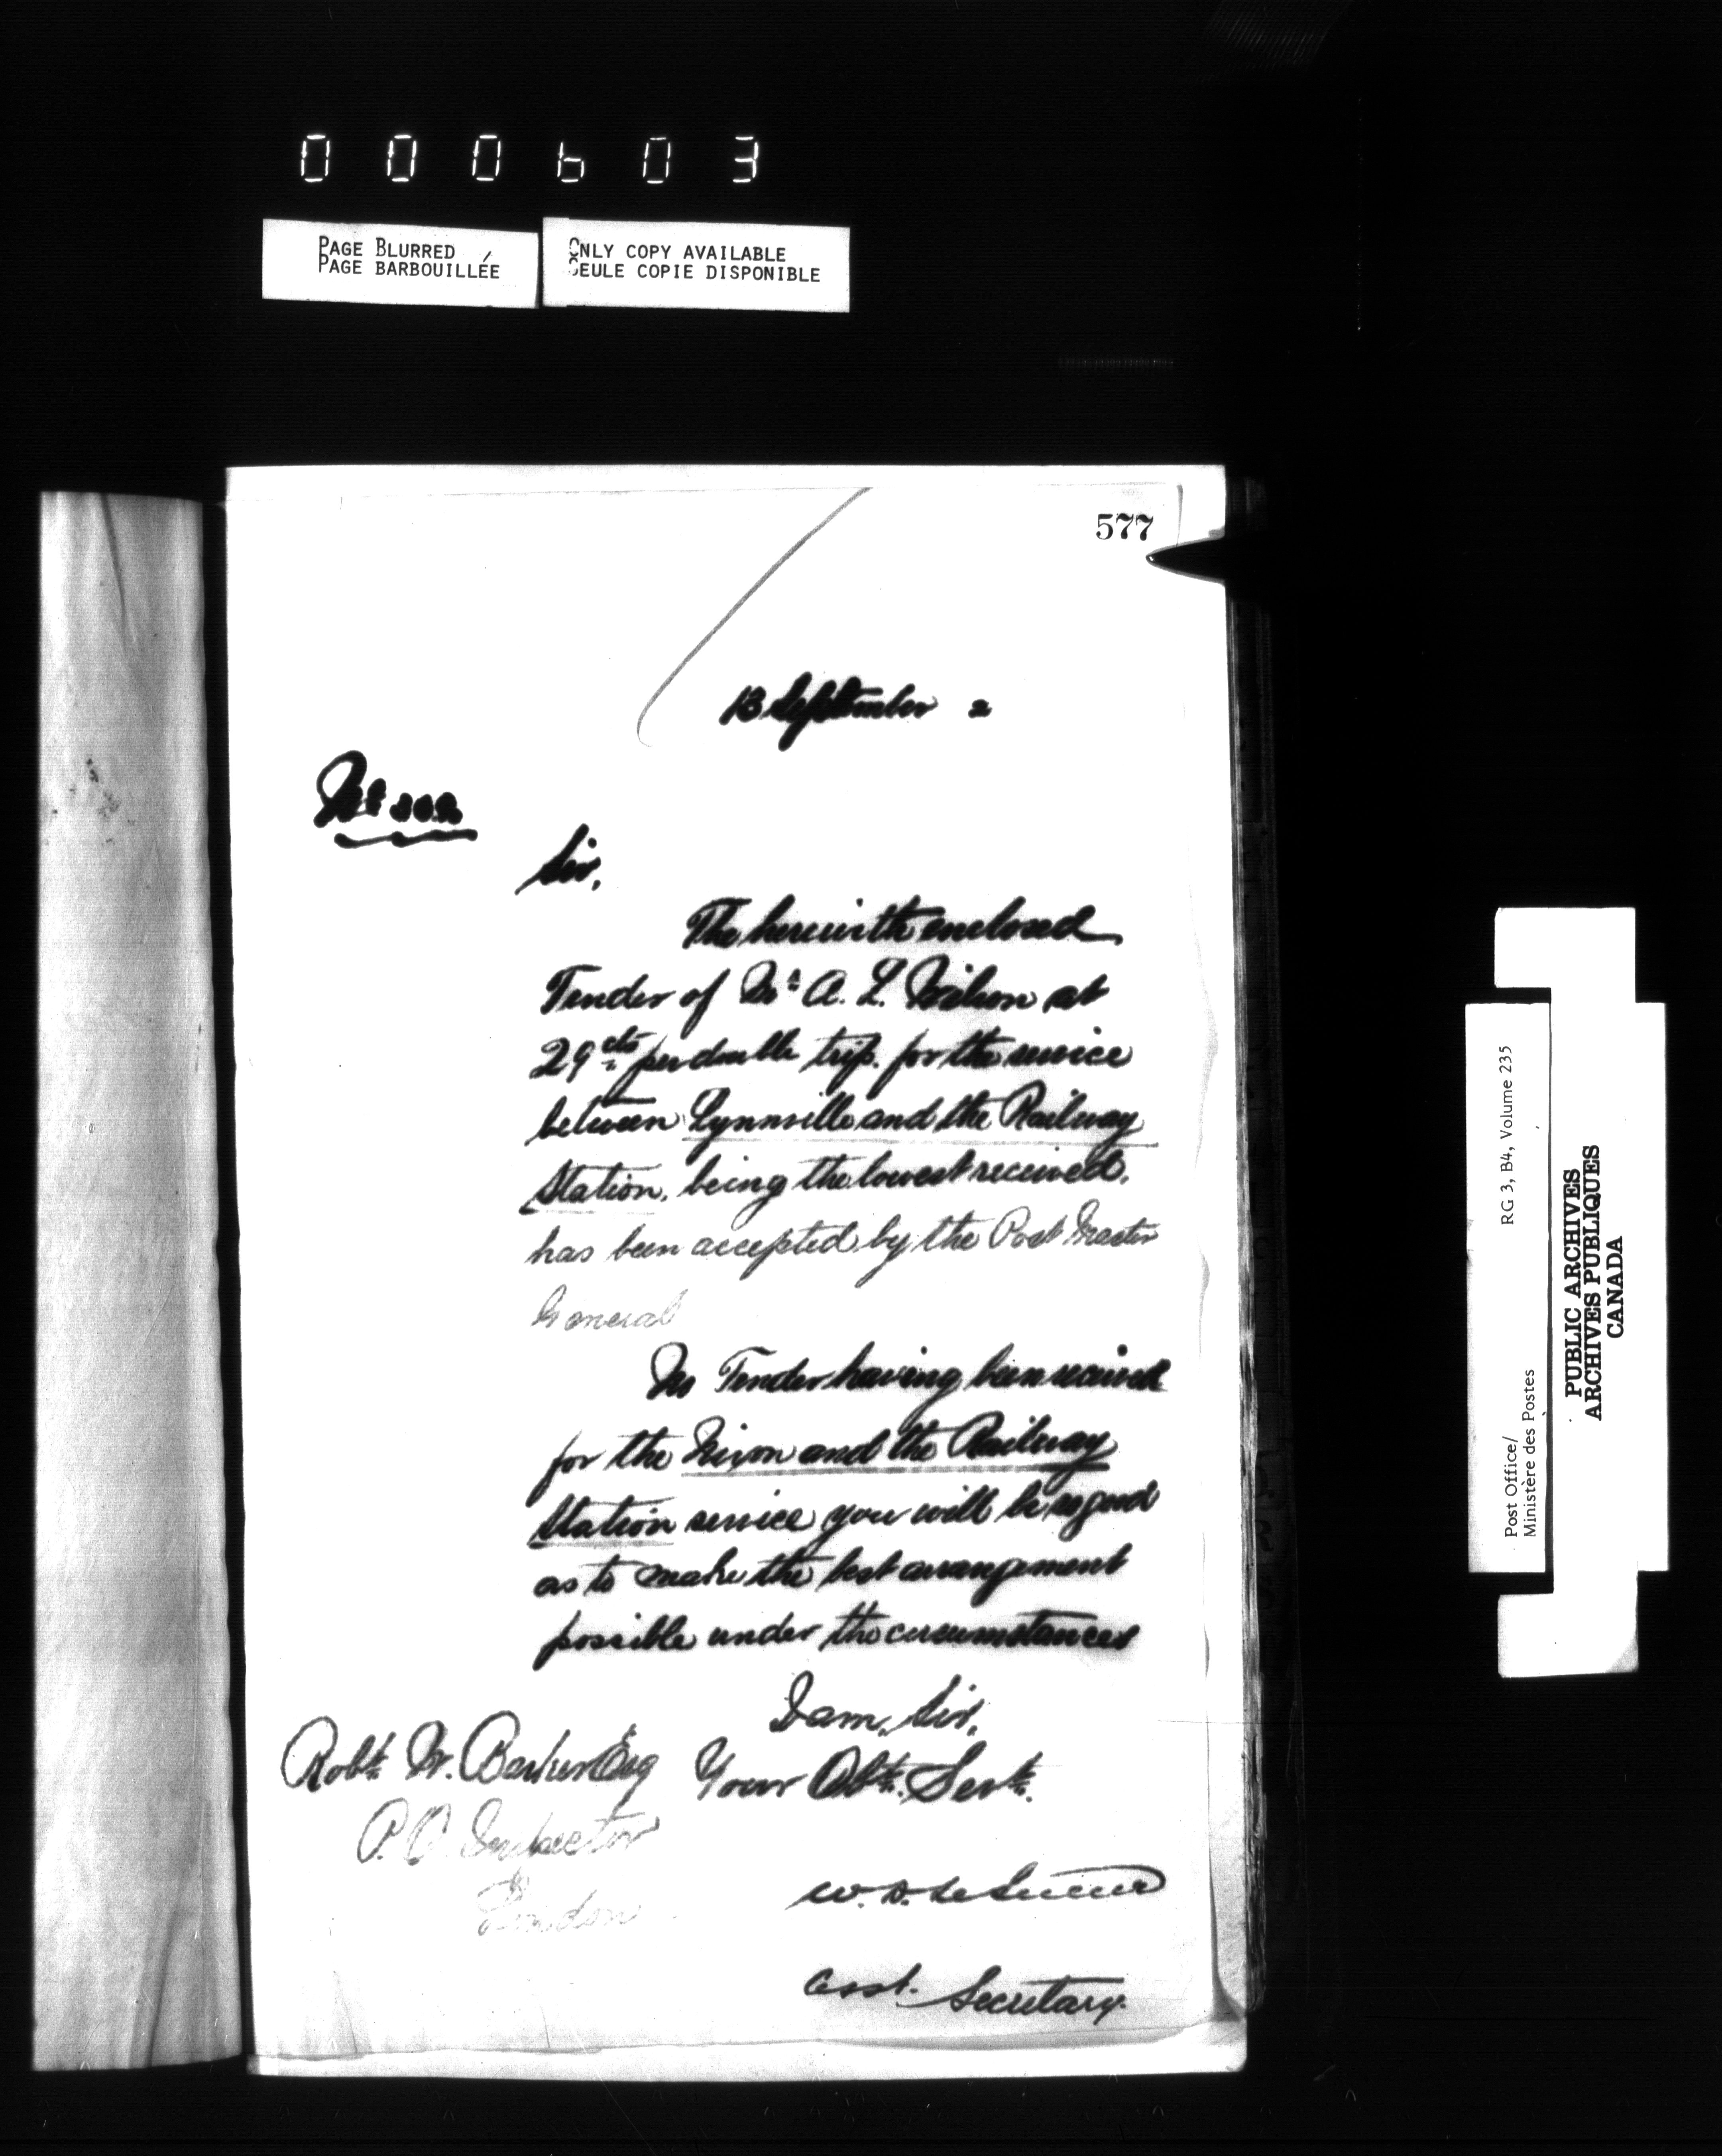 000603
PAGE BLURRED
PAGE BARBOUILLÉE
ONLY COPY AVAILABLE
SEULE COPIE DISPONIBLE
577
13 September 2
No
Sir,
The herewith enclosed
Tender of Mr A. L. Wilson at
29 cts per double trip. for the service
between Lynnville and the Railway
Station, being the lowest received,
has been accepted by the Post Master
General
No Tender having been received
for the Nixon and the Railway
Station service you will be so good
as to make the best arrangement
possible under the circumstances
I am, Sir,
Your Obt. Servt.
Robt. W. Barker Esq
P.O. Inspector
London
W. D. LeSueur
Asst. Secretary.
RG 3, B4, Volume 235
Post Office/
Ministère des Postes
PUBLIC ARCHIVES
ARCHIVES PUBLIQUES
CANADA